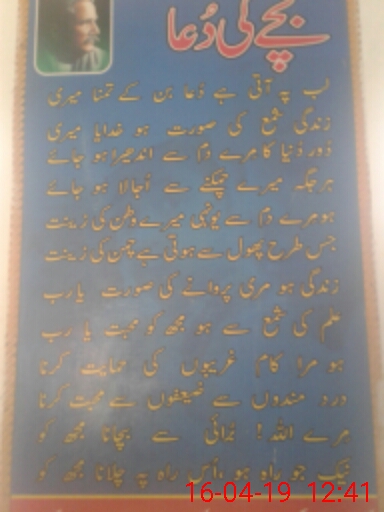 بچے کی دُعا
لب پہ آتی ہے دُعا بن کے تمنا میری
زندگی شمع کی صورت ہو خدایا میری
دُور دُنیا کا مرے دم سے اندھیرا ہو جائے
ہر جگہ میرے چمکنے سے اُجالا ہو جائے
ہو مرے دم سے یونہی میرے وطن کی زینت
جس طرح پھول سے ہوتی ہے چمن کی زینت
زندگی ہو مری پروانے کی صورت یا رب
علم کی شمع سے ہو مجھ کو محبت یا رب
ہو مرا کام غریبوں کی حمایت کرنا
درد مندوں سے ضعیفوں سے محبت کرنا
مرے اللہ! بُرائی سے بچانا مجھ کو
نیک جو راہ ہو، اُس راہ پہ چلانا مجھ کو
16-04-19 12:41